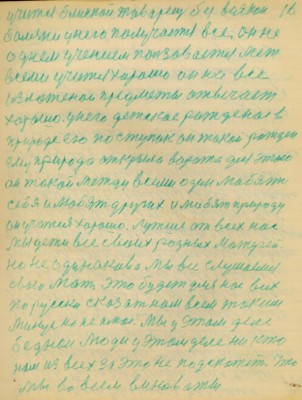 учится близкой товарищ бы всякой 16
болезни у него получается все, он не
одним учением пользовается мат
всеми учится хорошо он на все
изложеной предметы отвечает
хорошо у него детское рождена в
природе его поступок он такой рожден
ему природа открыла ворота для этого
он такой между всеми один любят
себя и любят других и любят природу
он учится хорошо. Лучше от всех нас
Мы дети все своих родных матерей
но не одинаково мы все слушаем
свою Мат, Это будет для нас всех
по русски сказат нам всем
но не. Мы у этом деле
бедной Люди у этом деле ни кто
нам из всех за это не подскажет. Что
мы во всем виноваты